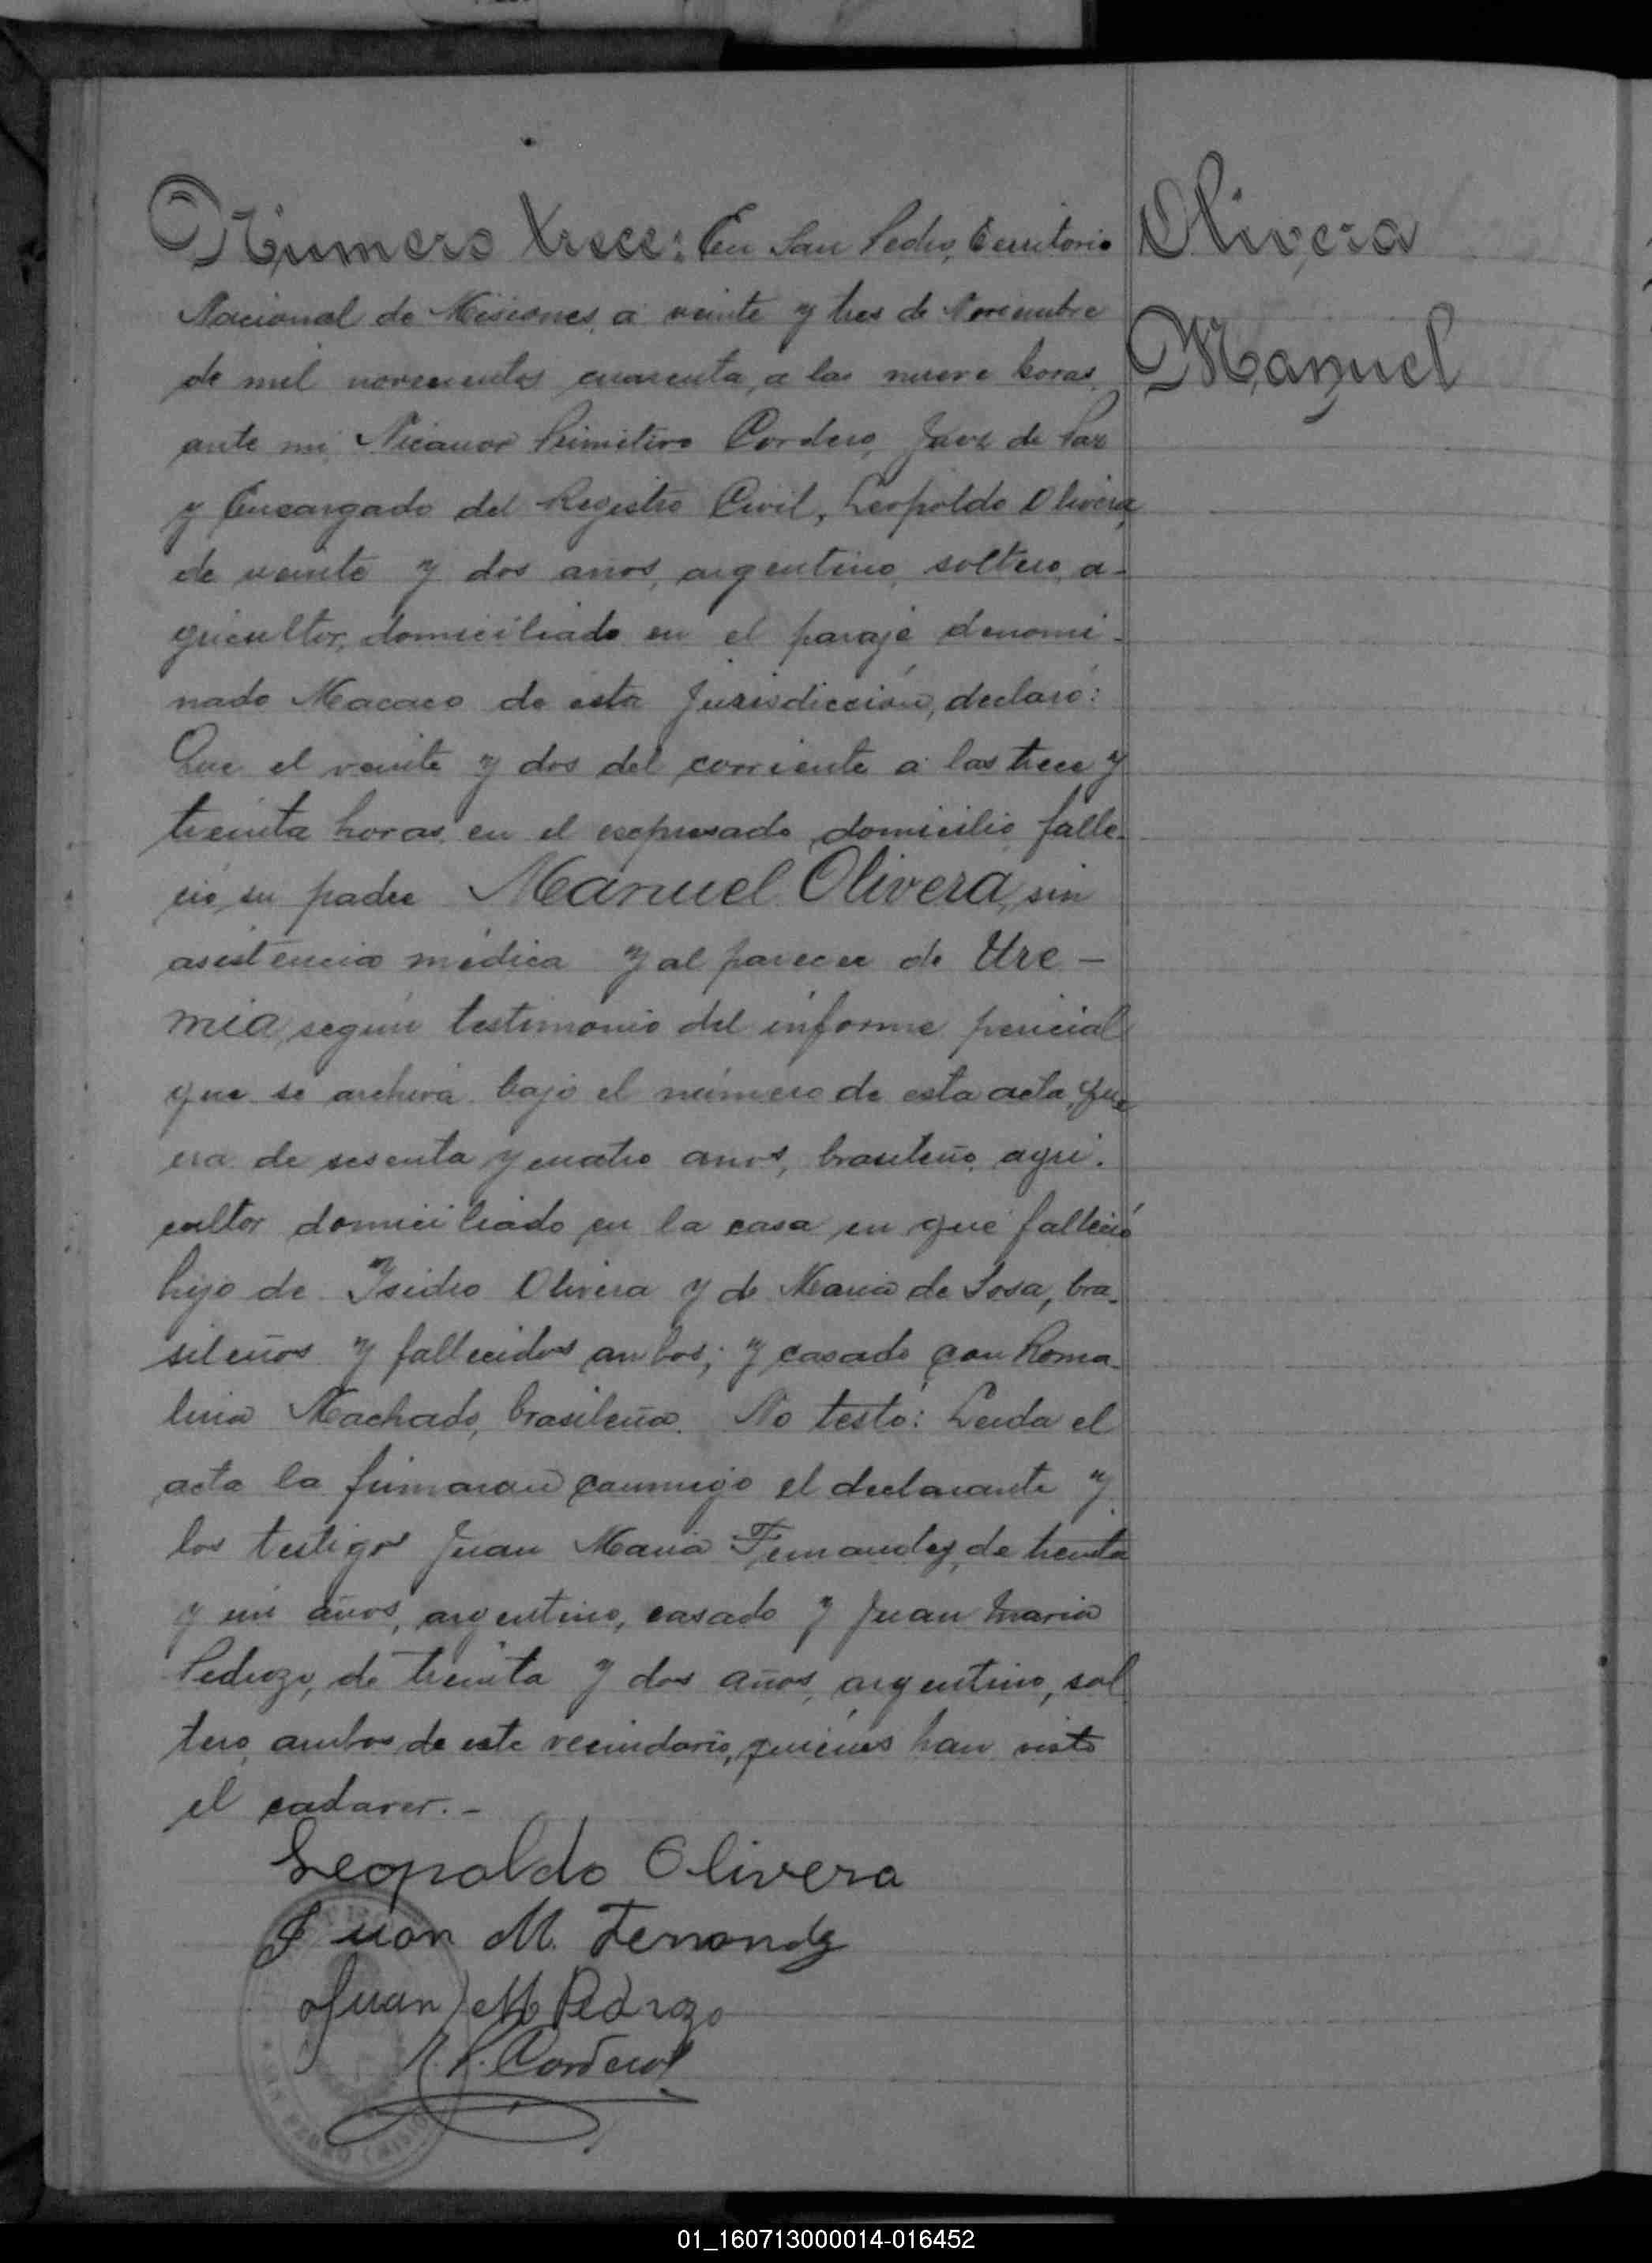 Número trece: En San Pedro, Territorio
Olivera
Nacional de Misiones, a veinte y tres de Noviembre
Manuel
de mil novecientos cuarenta, a las nueve horas,
ante mi, Nicanor Primitivo Cordero, Juez de Paz
y Encargado del Registro Civil, Leopoldo Olivera,
de veinte y dos años, argentino, soltero, a-
gricultor, domiciliado en el paraje denomi-
nado Macaco de esta Jurisdicción, declaró:
Que el veinte y dos del corriente a las trece y
treinta horas, en el expresado domicilio, falle-
ció su padre Manuel Olivera, sin
asistencia médica y al parecer de Ure-
mia, según testimonio del informe pericial
que se archiva bajo el número de esta acta, que
era de sesenta y cuatro años, brasileño, agri-
cultor domiciliado en la casa en que falleció
hijo de Ysidro Olivera y de Maria de Sosa, bra-
sileños y fallecidos ambos; y casado con Roma-
lina Machado, brasileña. No testó: Leida el
acta la firmaron conmigo el declarante y
los testigos Juan Maria Fernandez, de treinta
y un años, argentino, casado y Juan Maria
Pedrozo, de treinta y dos años, argentino, sol
tero, ambos de este vecindario, quienes han visto
el cadaver.-
Leopoldo Olivera
Juan M. Fernandz
Juan M Pedrozo
N. P. Cordero
SAN PEDRO (MISIO
01_160713000014-016452